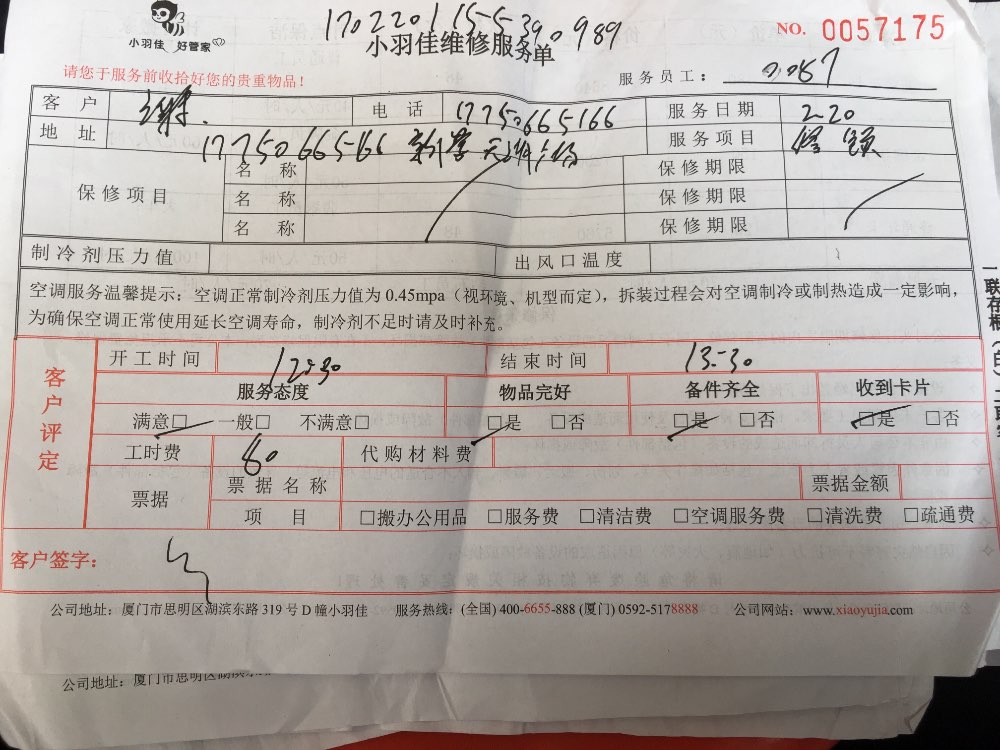 1702201155390989
小羽佳 好管家
NO. 0057175
小羽佳维修服务单
请您于服务前收拾好您的贵重物品！
服务员工： 0087
客户 电话 17750665166 服务日期 2-20
地址 17750665166 服务项目
保修项目 名称 保修期限
名称 保修期限
名称 保修期限
制冷剂压力值 出风口温度
空调服务温馨提示：空调正常制冷剂压力值为 0.45mpa（视环境、机型而定），拆装过程会对空调制冷或制热造成一定影响，
为确保空调正常使用延长空调寿命，制冷剂不足时请及时补充。
客户评定
开工时间 12:30 结束时间 13:30
服务态度 物品完好 备件齐全 收到卡片
满意□ 一般□ 不满意□ □是 □否 □是 □否 □是 □否
工时费 80 代购材料费
票据 票据名称 票据金额
项目 □搬办公用品 □服务费 □清洁费 □空调服务费 □清洗费 □疏通费
客户签字：
公司地址：厦门市思明区湖滨东路 319 号 D 幢小羽佳 服务热线：(全国) 400-6655-888 (厦门) 0592-5178888 公司网站：www.xiaoyujia.com
公司地址：厦门市思明区湖滨东